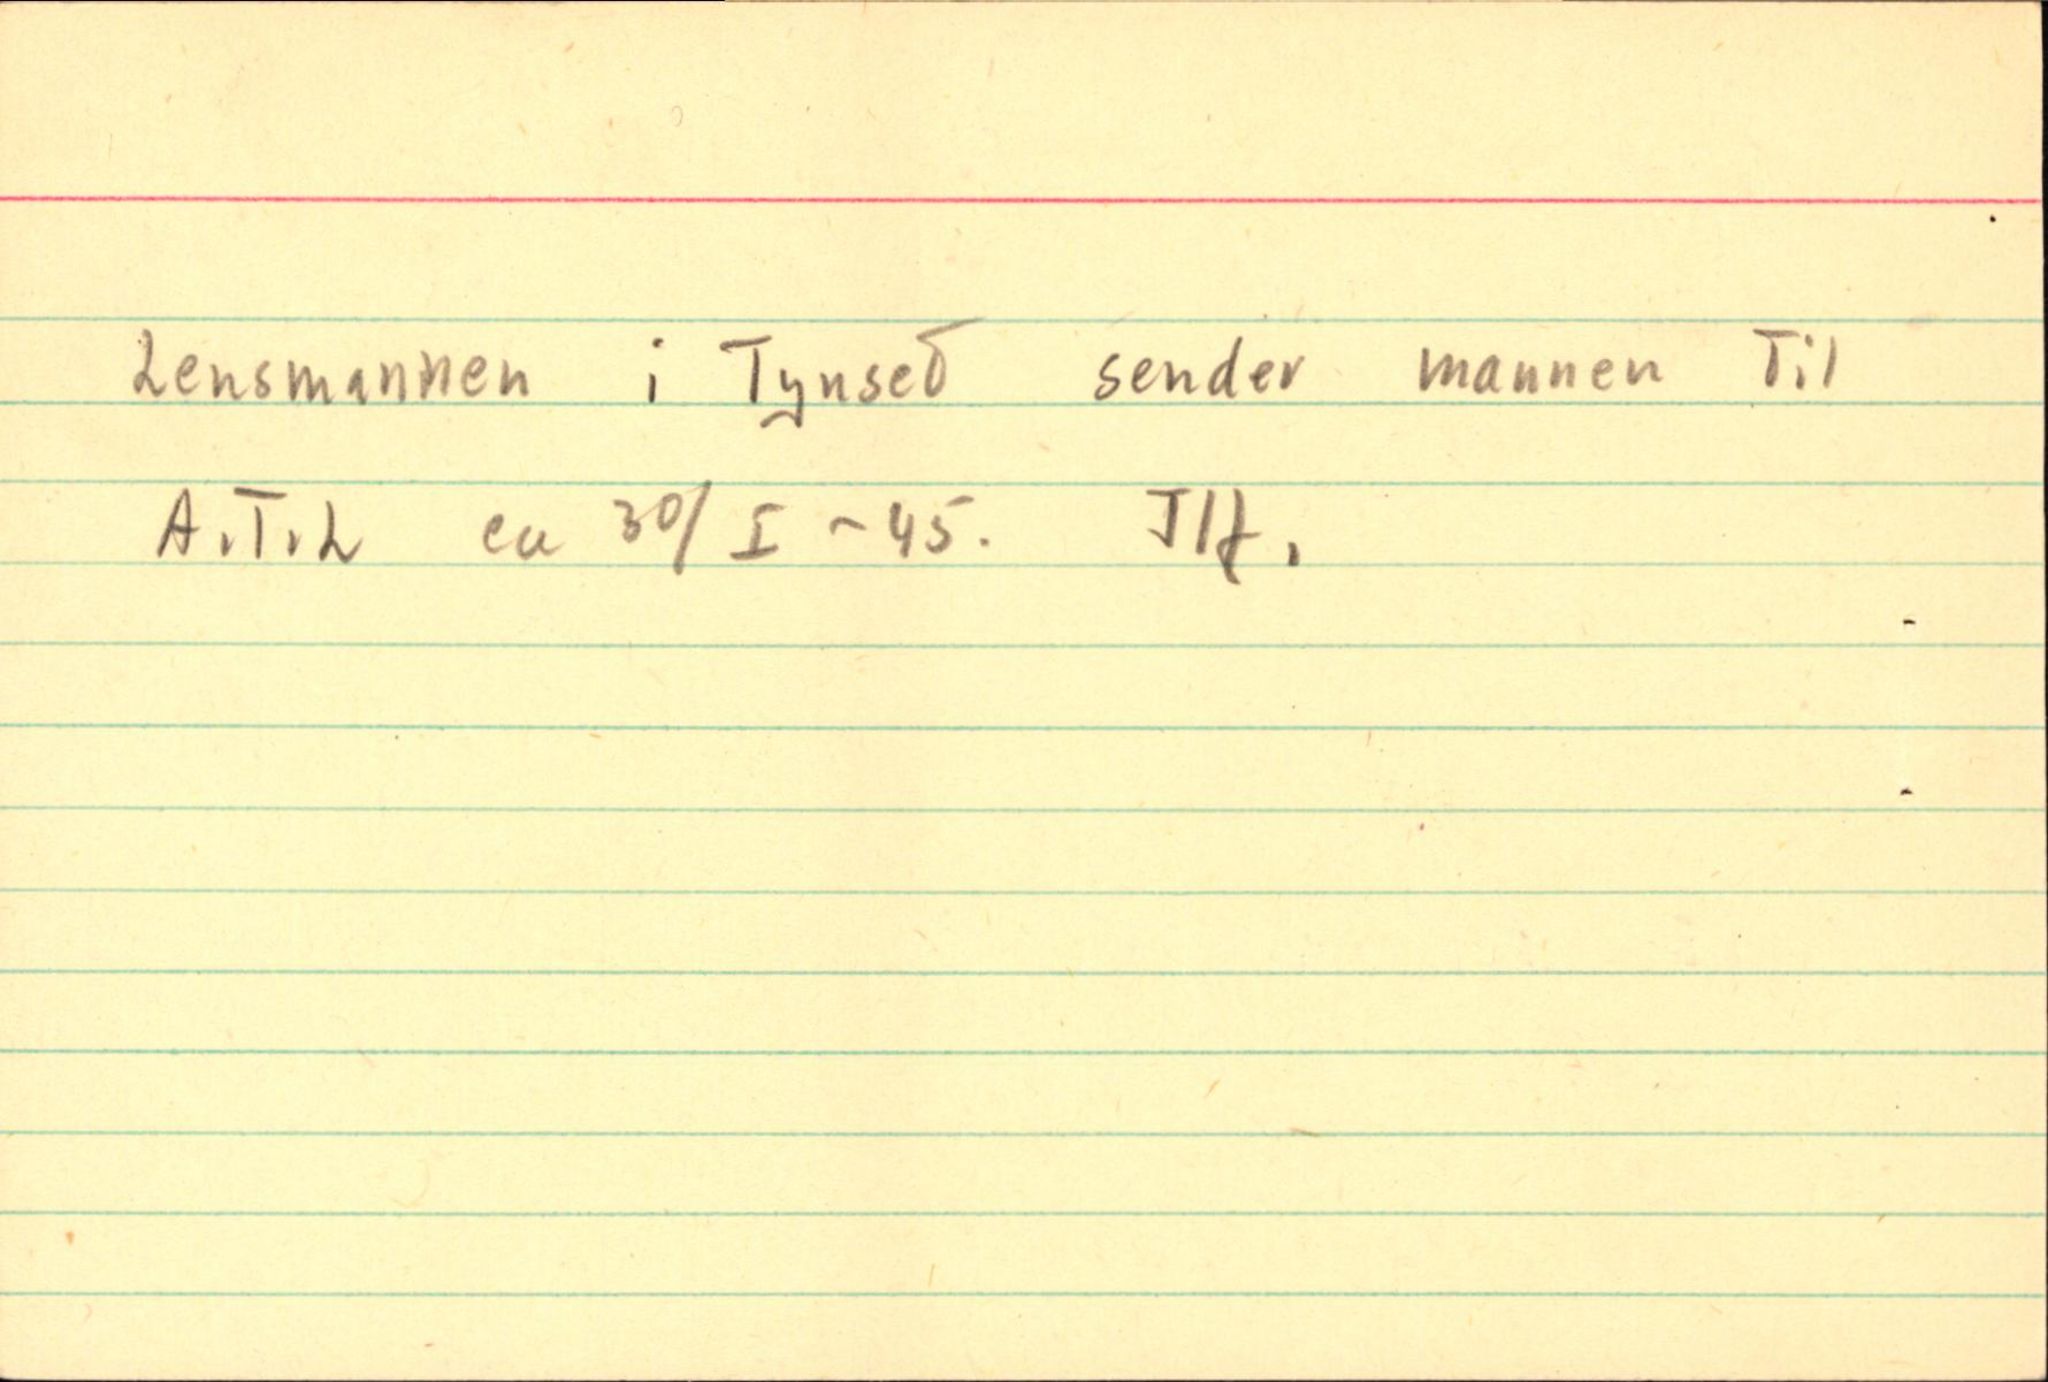 Lensmannen i Tynset sender mannen til
A.T.L ca 30/I - 45. Tlf.